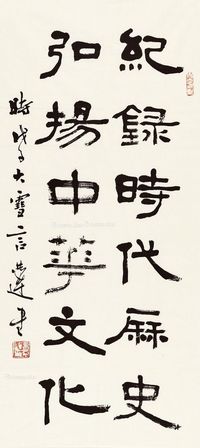 紀録時代厤史
弘揚中華文化
時戊子大雪言恭達書